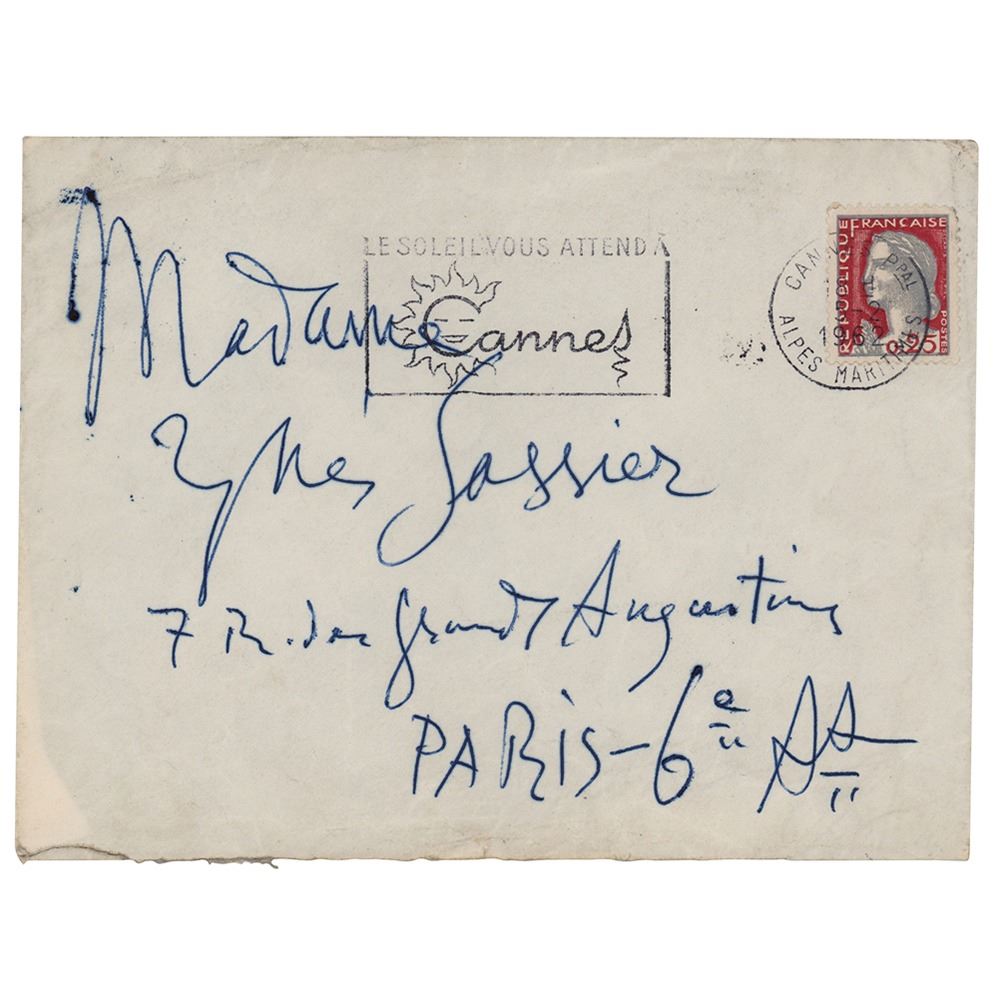 LE SOLEIL VOUS ATTEND À
Cannes
CANNES PPAL
1962
ALPES MARITIMES
REPUBLIQUE FRANCAISE
POSTES
0,25
Madame
Ynes Sassier
7 R. des Grands Augustins
PARIS-6e